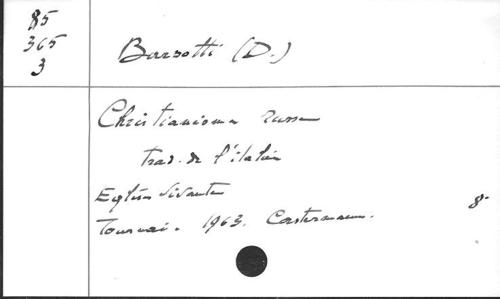 85
365
3
Barsotti (D.)
Christianisme russe
trad. de l'italien
Eglise vivante
Tournai. 1963. Casterman.
8°